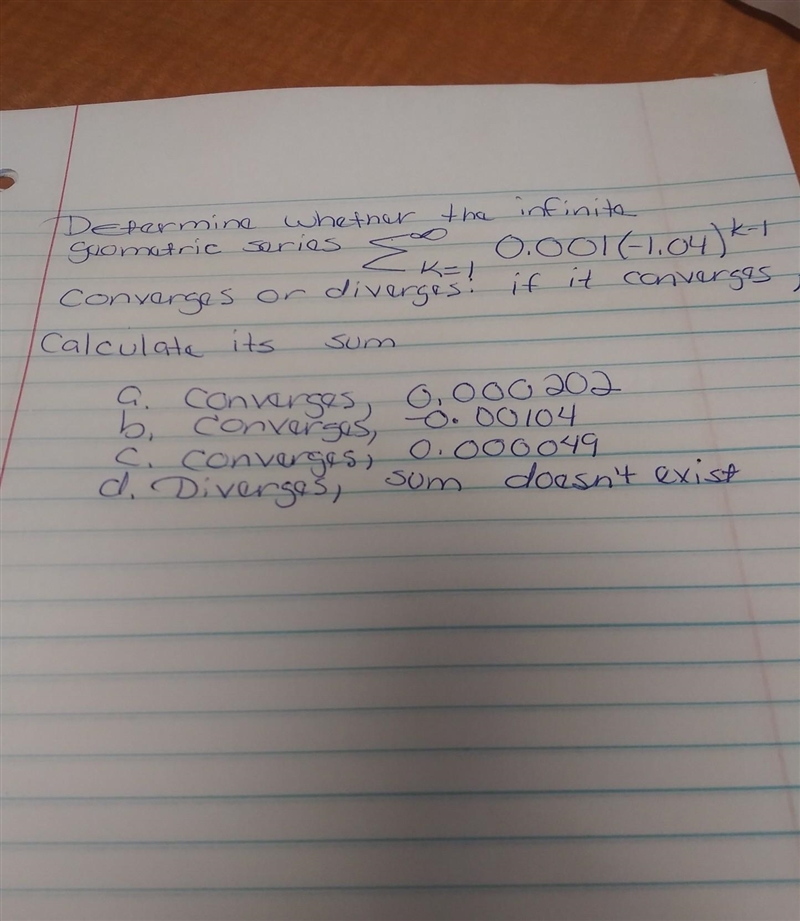 Determine whether the infinite
geometric series ∑_{k=1}^{∞} 0.001(-1.04)^{k-1}
converges or diverges. if it converges,
Calculate its sum
a. converges, 0.000202
b, converges, -0.00104
c. converges, 0.000049
d. Diverges, sum doesn't exist